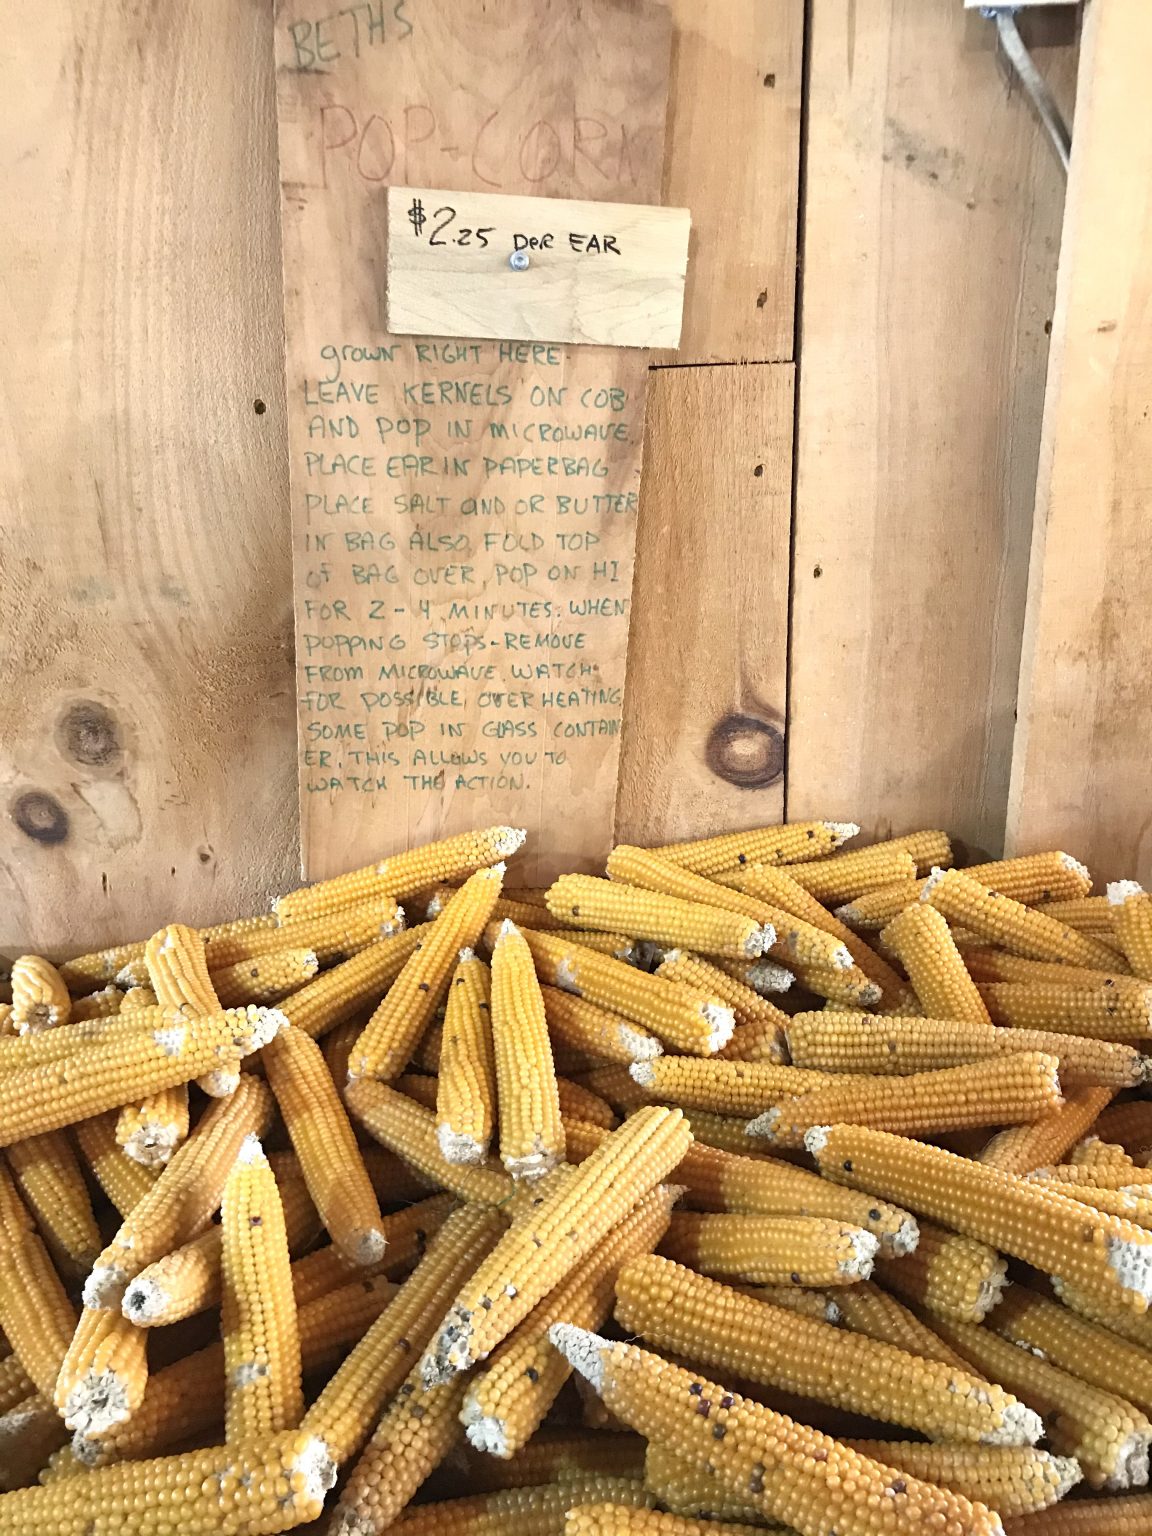 BETHS
POP-CORN
$2.25 per EAR
grown RIGHT HERE
LEAVE KERNELS ON COB
AND POP IN MICROWAVE.
PLACE EAR IN PAPERBAG
PLACE SALT and OR BUTTER
IN BAG ALSO, FOLD TOP
of BAG OVER, POP ON HI
FOR 2-4 MINUTES. WHEN
POPPING STOPS-REMOVE
FROM MICROWAVE. WATCH
FOR POSSIBLE OVER HEATING
SOME POP IN GLASS CONTAIN
ER. THIS ALLOWS YOU TO
WATCH THE ACTION.